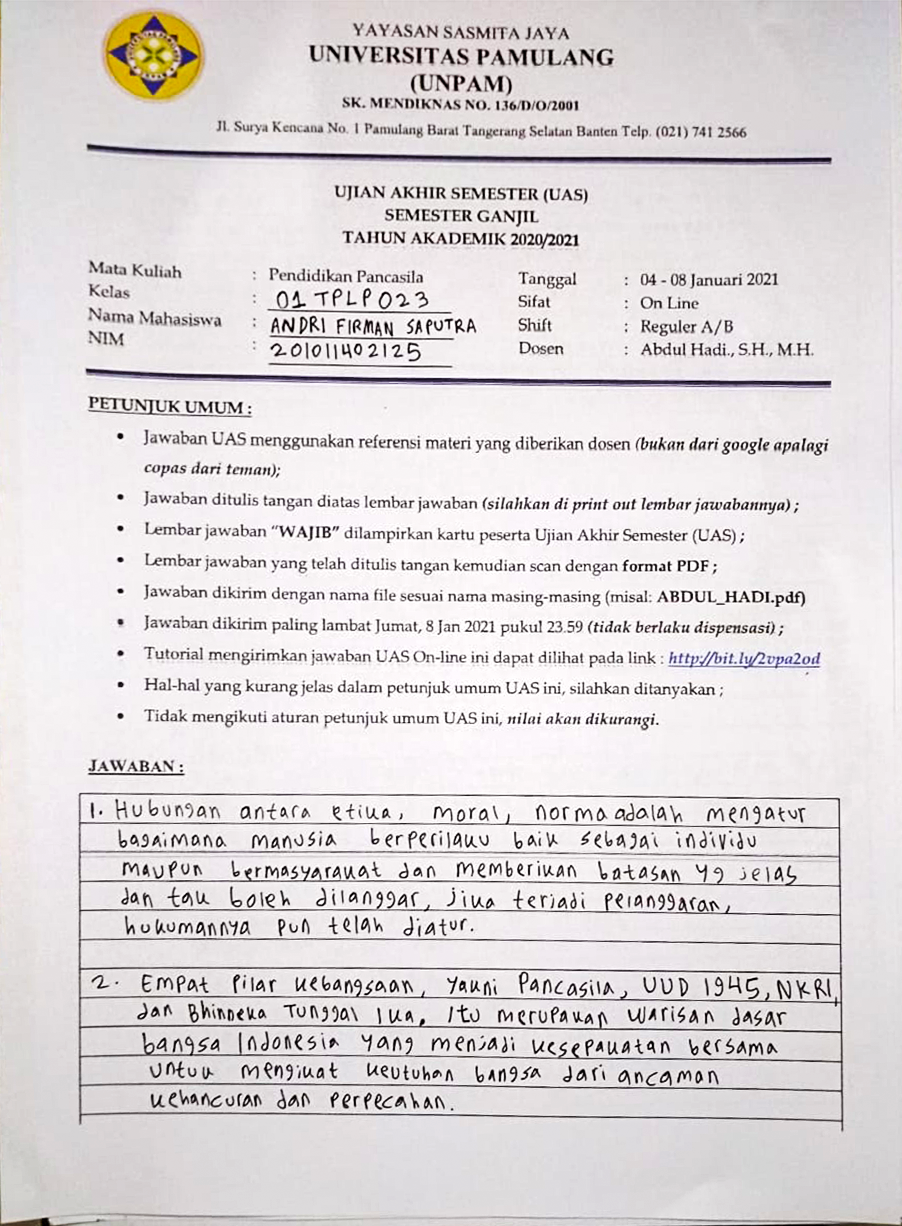 YAYASAN SASMITA JAYA
UNIVERSITAS PAMULANG
(UNPAM)
SK. MENDIKNAS NO. 136/D/O/2001
Jl. Surya Kencana No. 1 Pamulang Barat Tangerang Selatan Banten Telp. (021) 741 2566
UJIAN AKHIR SEMESTER (UAS)
SEMESTER GANJIL
TAHUN AKADEMIK 2020/2021
Mata Kuliah : Pendidikan Pancasila
Kelas : 01 TPLP023
Nama Mahasiswa : ANDRI FIRMAN SAPUTRA
NIM : 201011402125
Tanggal : 04 - 08 Januari 2021
Sifat : On Line
Shift : Reguler A/B
Dosen : Abdul Hadi., S.H., M.H.
PETUNJUK UMUM :
• Jawaban UAS menggunakan referensi materi yang diberikan dosen (bukan dari google apalagi
copas dari teman);
• Jawaban ditulis tangan diatas lembar jawaban (silahkan di print out lembar jawabannya) ;
• Lembar jawaban "WAJIB" dilampirkan kartu peserta Ujian Akhir Semester (UAS) ;
• Lembar jawaban yang telah ditulis tangan kemudian scan dengan format PDF ;
• Jawaban dikirim dengan nama file sesuai nama masing-masing (misal: ABDUL_HADI.pdf)
• Jawaban dikirim paling lambat Jumat, 8 Jan 2021 pukul 23.59 (tidak berlaku dispensasi) ;
• Tutorial mengirimkan jawaban UAS On-line ini dapat dilihat pada link : http://bit.ly/2vpa2od
• Hal-hal yang kurang jelas dalam petunjuk umum UAS ini, silahkan ditanyakan ;
• Tidak mengikuti aturan petunjuk umum UAS ini, nilai akan dikurangi.
JAWABAN :
1. Hubungan antara etika, moral, norma adalah mengatur
bagaimana manusia berperilaku baik sebagai individu
maupun bermasyarakat dan memberikan batasan yg jelas
dan tak boleh dilanggar, jika terjadi pelanggaran,
hukumannya pun telah diatur.
2. Empat Pilar kebangsaan, yakni Pancasila, UUD 1945, NKRI,
dan Bhinneka Tunggal Ika, Itu merupakan warisan dasar
bangsa Indonesia yang menjadi kesepakatan bersama
untuk mengikat keutuhan bangsa dari ancaman
kehancuran dan perpecahan.